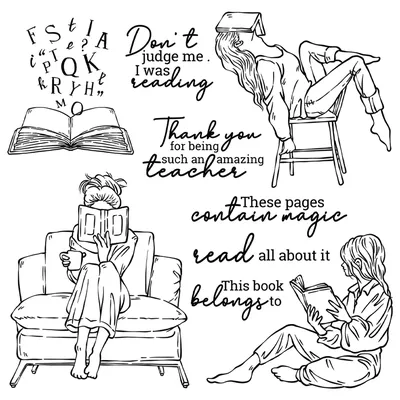 F S t I A
i " t e ? "
P T Q K t
k R Y H "
M O
Don't
judge me .
I was
reading
Thank you
for being
such an amazing
teacher
These pages
contain magic
read all about it
This book
belongs to